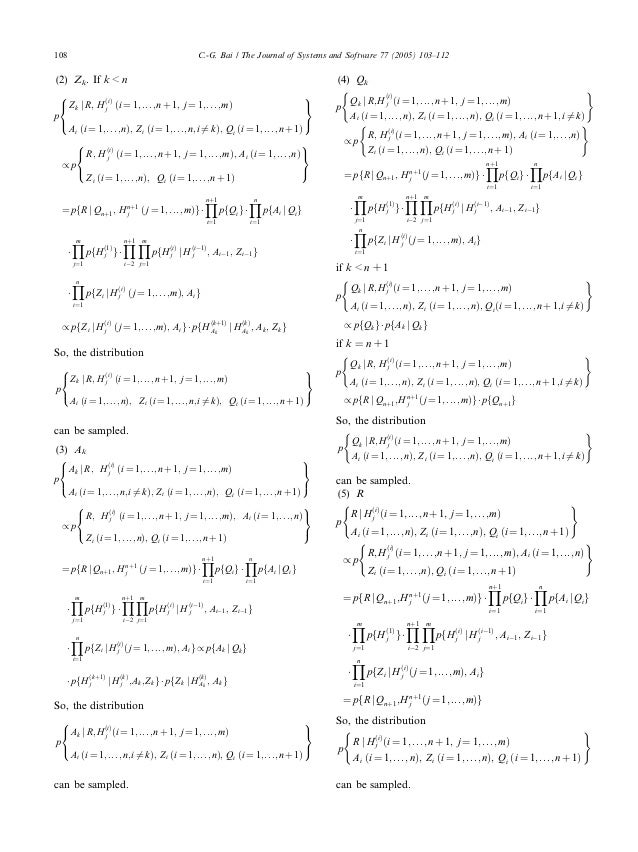 108
C.-G. Bai / The Journal of Systems and Software 77 (2005) 103–112
(2) Z_k. If k < n
p{Z_k | R, H_j^(i) (i=1,...,n+1, j=1,...,m)
A_i (i=1,...,n), Z_i (i=1,...,n, i≠k), Q_i (i=1,...,n+1)}
∝p{R, H_j^(i) (i=1,...,n+1, j=1,...,m), A_i (i=1,...,n)
Z_i (i=1,...,n), Q_i (i=1,...,n+1)}
=p{R | Q_{n+1}, H_j^{n+1} (j=1,...,m)}·∏_{i=1}^{n+1} p{Q_i}·∏_{i=1}^{n} p{A_i | Q_i}
·∏_{j=1}^{m} p{H_j^(1)}·∏_{i=2}^{n+1} ∏_{j=1}^{m} p{H_j^(i) | H_j^(i−1), A_{i−1}, Z_{i−1}}
·∏_{i=1}^{n} p{Z_i | H_j^(i) (j=1,...,m), A_i}
∝p{Z_i | H_j^(i) (j=1,...,m), A_i}·p{H_{A_k}^(k+1) | H_{A_k}^(k), A_k, Z_k}
So, the distribution
p{Z_k | R, H_j^(i) (i=1,...,n+1, j=1,...,m)
A_i (i=1,...,n), Z_i (i=1,...,n, i≠k), Q_i (i=1,...,n+1)}
can be sampled.
(3) A_k
p{A_k | R, H_j^(i) (i=1,...,n+1, j=1,...,m)
A_i (i=1,...,n, i≠k), Z_i (i=1,...,n), Q_i (i=1,...,n+1)}
∝p{R, H_j^(i) (i=1,...,n+1, j=1,...,m), A_i (i=1,...,n)
Z_i (i=1,...,n), Q_i (i=1,...,n+1)}
=p{R | Q_{n+1}, H_j^{n+1} (j=1,...,m)}·∏_{i=1}^{n+1} p{Q_i}·∏_{i=1}^{n} p{A_i | Q_i}
·∏_{j=1}^{m} p{H_j^(1)}·∏_{i=2}^{n+1} ∏_{j=1}^{m} p{H_j^(i) | H_j^(i−1), A_{i−1}, Z_{i−1}}
·∏_{i=1}^{n} p{Z_i | H_j^(i) (j=1,...,m), A_i}∝p{A_k | Q_k}
·p{H_j^(k+1) | H_j^(k), A_k, Z_k}·p{Z_k | H_{A_k}^(k), A_k}
So, the distribution
p{A_k | R, H_j^(i) (i=1,...,n+1, j=1,...,m)
A_i (i=1,...,n, i≠k), Z_i (i=1,...,n), Q_i (i=1,...,n+1)}
can be sampled.
(4) Q_k
p{Q_k | R, H_j^(i) (i=1,...,n+1, j=1,...,m)
A_i (i=1,...,n), Z_i (i=1,...,n), Q_i (i=1,...,n+1, i≠k)}
∝p{R, H_j^(i) (i=1,...,n+1, j=1,...,m), A_i (i=1,...,n)
Z_i (i=1,...,n), Q_i (i=1,...,n+1)}
=p{R | Q_{n+1}, H_j^{n+1} (j=1,...,m)}·∏_{i=1}^{n+1} p{Q_i}·∏_{i=1}^{n} p{A_i | Q_i}
·∏_{j=1}^{m} p{H_j^(1)}·∏_{i=2}^{n+1} ∏_{j=1}^{m} p{H_j^(i) | H_j^(i−1), A_{i−1}, Z_{i−1}}
·∏_{i=1}^{n} p{Z_i | H_j^(i) (j=1,...,m), A_i}
if k < n + 1
p{Q_k | R, H_j^(i) (i=1,...,n+1, j=1,...,m)
A_i (i=1,...,n), Z_i (i=1,...,n), Q_i (i=1,...,n+1, i≠k)}
∝p{Q_k}·p{A_k | Q_k}
if k = n + 1
p{Q_k | R, H_j^(i) (i=1,...,n+1, j=1,...,m)
A_i (i=1,...,n), Z_i (i=1,...,n), Q_i (i=1,...,n+1, i≠k)}
∝p{R | Q_{n+1}, H_j^{n+1} (j=1,...,m)}·p{Q_{n+1}}
So, the distribution
p{Q_k | R, H_j^(i) (i=1,...,n+1, j=1,...,m)
A_i (i=1,...,n), Z_i (i=1,...,n), Q_i (i=1,...,n+1, i≠k)}
can be sampled.
(5) R
p{R | H_j^(i) (i=1,...,n+1, j=1,...,m)
A_i (i=1,...,n), Z_i (i=1,...,n), Q_i (i=1,...,n+1)}
∝p{R, H_j^(i) (i=1,...,n+1, j=1,...,m), A_i (i=1,...,n)
Z_i (i=1,...,n), Q_i (i=1,...,n+1)}
=p{R | Q_{n+1}, H_j^{n+1} (j=1,...,m)}·∏_{i=1}^{n+1} p{Q_i}·∏_{i=1}^{n} p{A_i | Q_i}
·∏_{j=1}^{m} p{H_j^(1)}·∏_{i=2}^{n+1} ∏_{j=1}^{m} p{H_j^(i) | H_j^(i−1), A_{i−1}, Z_{i−1}}
·∏_{i=1}^{n} p{Z_i | H_j^(i) (j=1,...,m), A_i}
=p{R | Q_{n+1}, H_j^{n+1} (j=1,...,m)}
So, the distribution
p{R | H_j^(i) (i=1,...,n+1, j=1,...,m)
A_i (i=1,...,n), Z_i (i=1,...,n), Q_i (i=1,...,n+1)}
can be sampled.